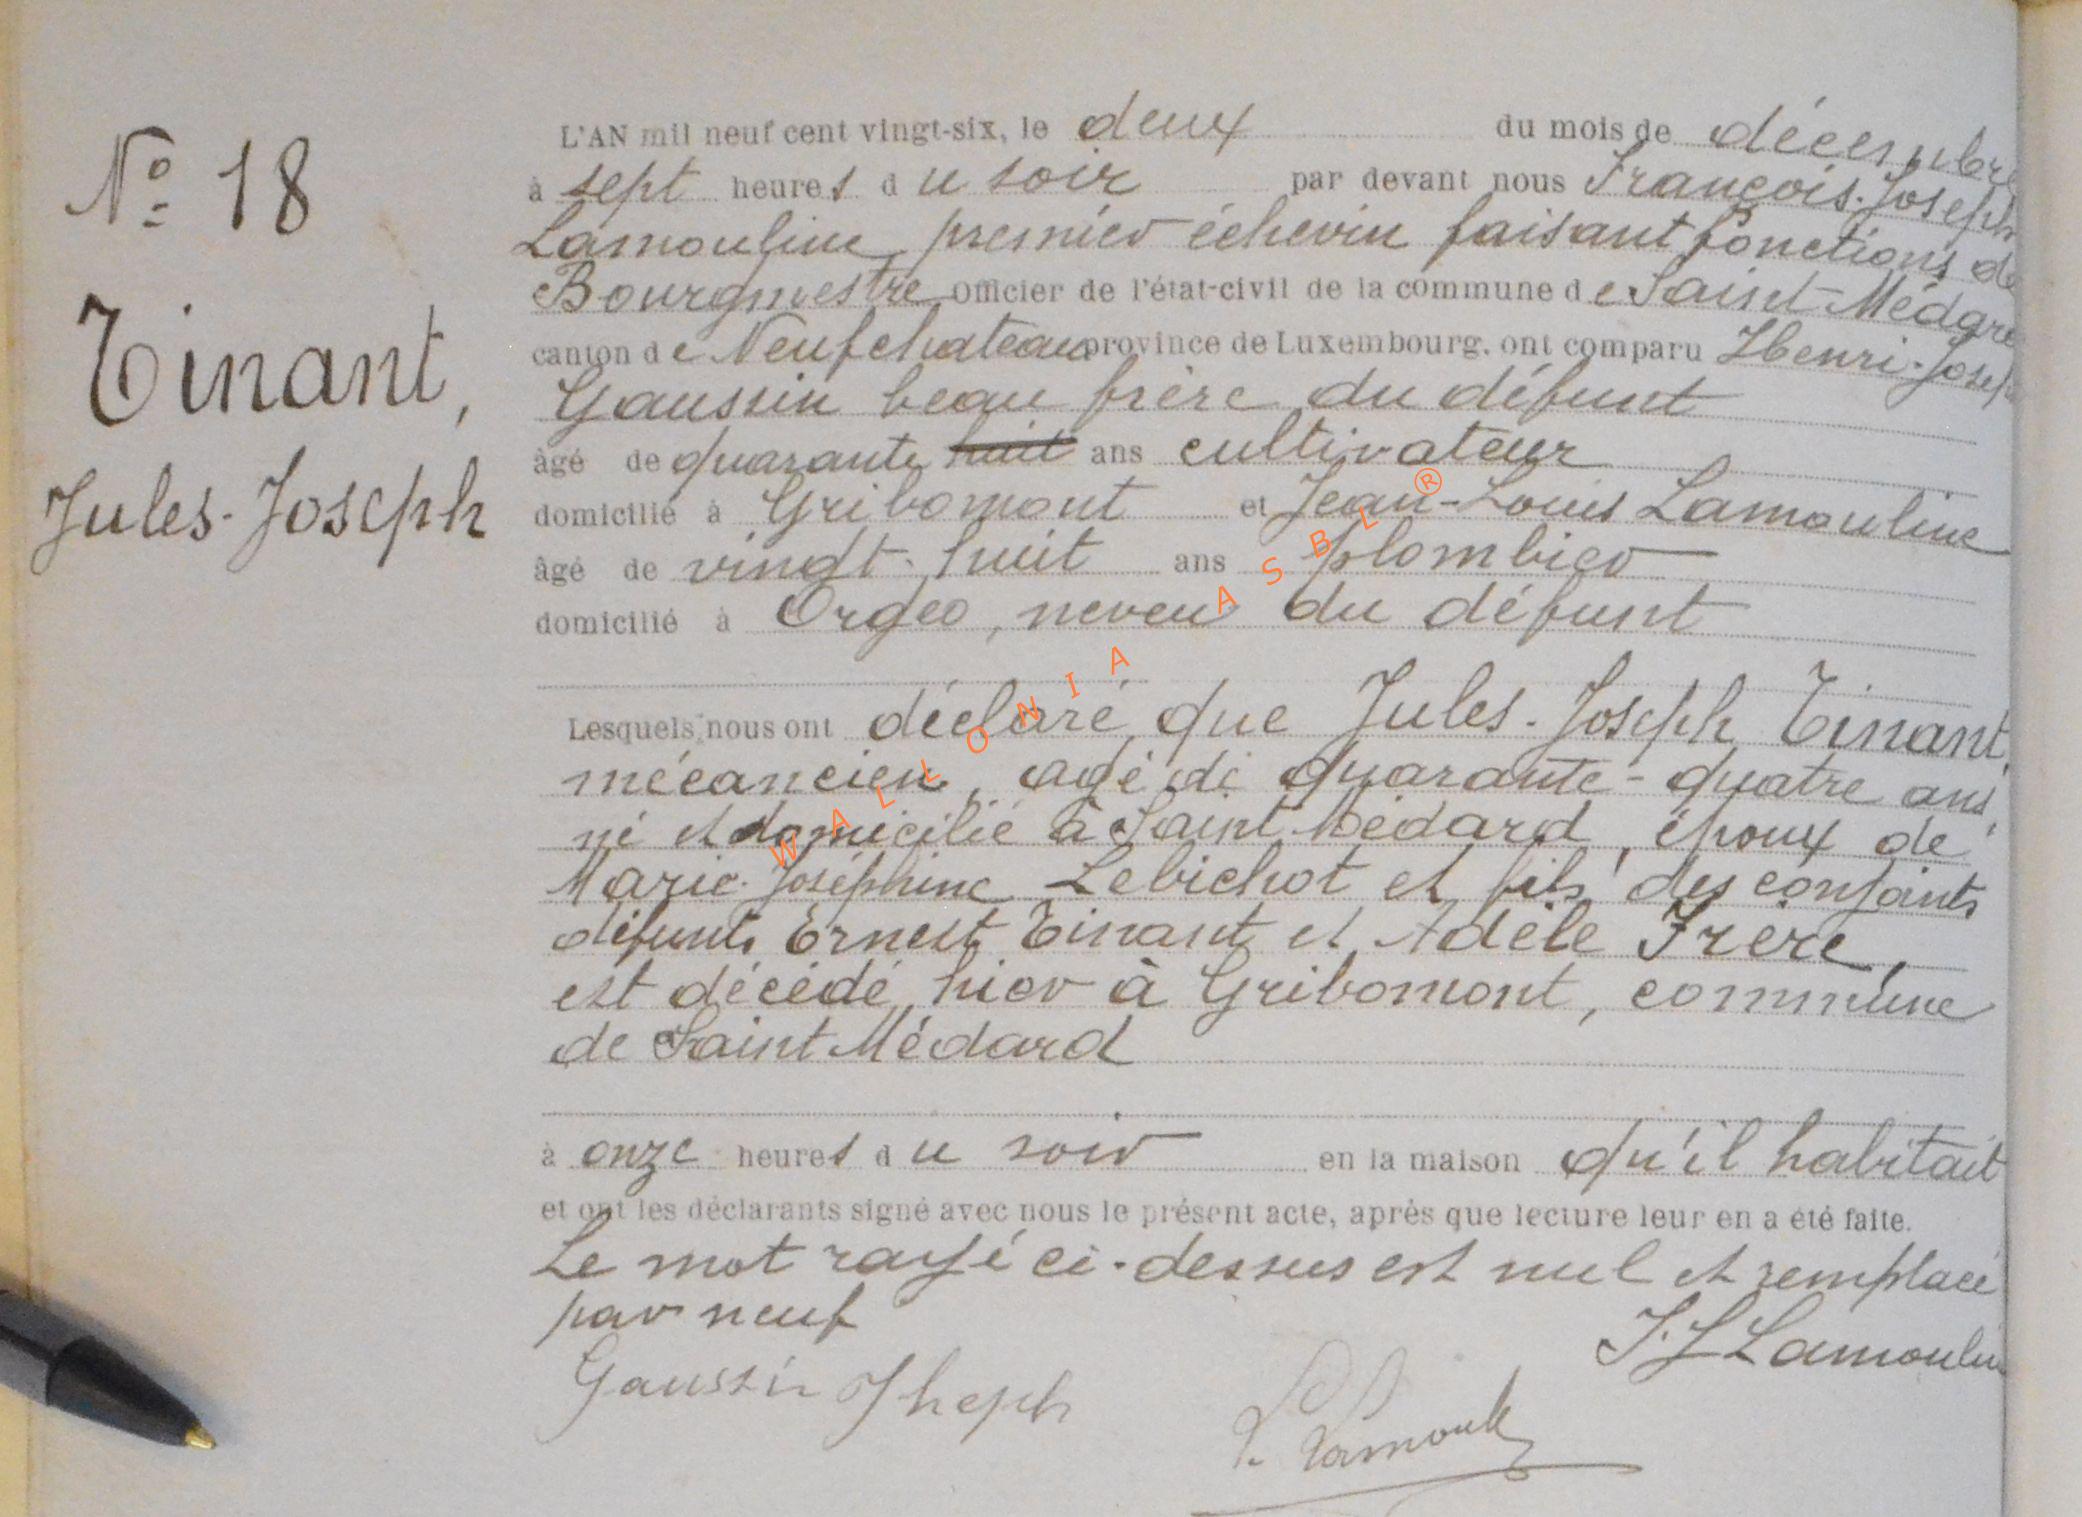 N° 18
Tinant,
Jules-Joseph
L'AN mil neuf cent vingt-six, le deux du mois de décembre
à sept heures du soir par devant nous François-Joseph
Lamouline, premier échevin faisant fonctions de
Bourgmestre Officier de l'état-civil de la commune de Saint-Médard
canton de Neufchateau province de Luxembourg, ont comparu Henri-Joseph
Gaussin beau frère du défunt
âgé de quarante huit ans cultivateur
domicilié à Gribomont et Jean-Louis Lamouline
âgé de vingt-huit ans plombier
domicilié à Orgeo, neveu du défunt
Lesquels nous ont déclaré que Jules-Joseph Tinant,
mécancien, agé de quarante-quatre ans,
né et domicilié à Saint Médard, époux de
Marie-Joséphine Lebichot et fils des conjoints
défunts Ernest Tinant et Adèle Frère,
est décédé hier à Gribomont, commune
de Saint Médard
à onze heures du soir en la maison qu'il habitait
et ont les déclarants signé avec nous le présent acte, après que lecture leur en a été faite.
Le mot rayé ci-dessus est nul et remplacé
par neuf
J. L Lamouline
Gaussin Jheph
WALLONIA ASBL ®